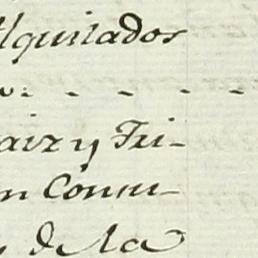 lquilados
aiz y Tri-
n Consu-
de la